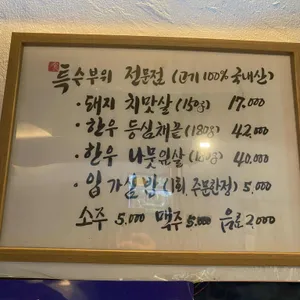 특수부위 전문점 (고기 100% 국내산)
· 돼지 치맛살 (150g) 17.000
· 한우 등심채끝 (180g) 42.000
· 한우 나뭇잎살 40.000
· 입가심 밥 (1회, 주문한정) 5.000
소주 5.000 맥주 5.000 음료 2.000